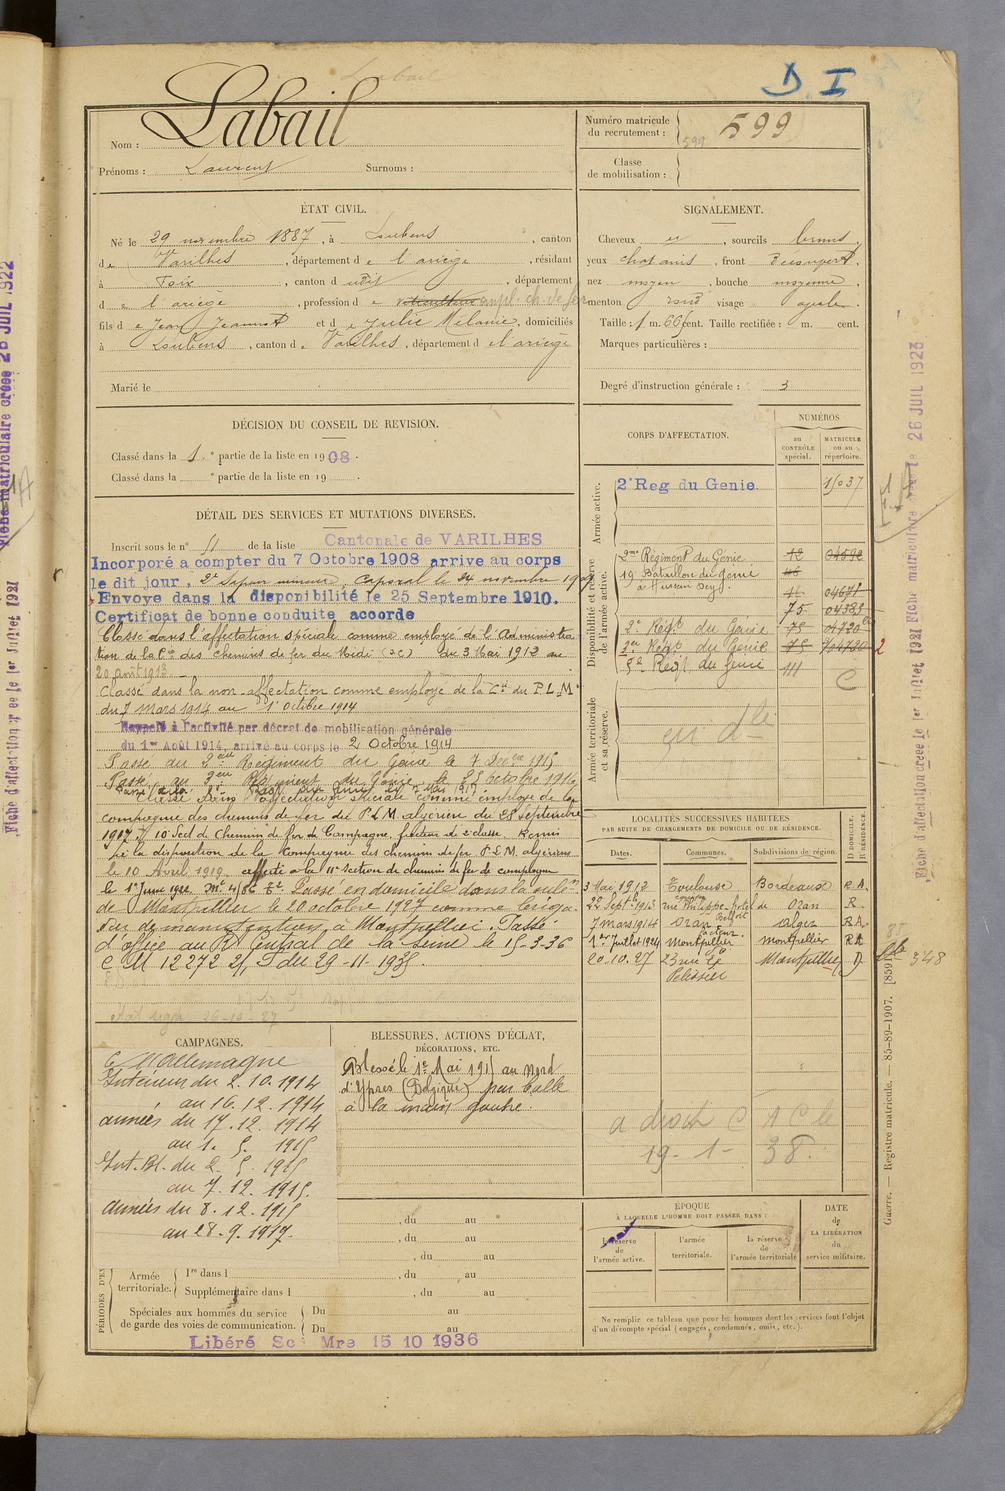 Labail
D I
Nom : Labail
Prénoms : Laurent Surnoms :
Numéro matricule
du recrutement : 599 599
Classe
de mobilisation :
ÉTAT CIVIL.
Né le 29 novembre 1887, à Loubens, canton
de Varilhes, département de l'ariège, résidant
à Foix, canton d udit, département
de l'ariège, profession d'empl. ch. de fer
fils de Jean Jeannot et de Julie Mélanie, domiciliés
à Loubens, canton de Varilhes, département de l'ariège
Marié le
SIGNALEMENT.
Cheveux et, sourcils bruns,
yeux chatanis, front Découvert,
nez moyen, bouche moyenne,
menton rond visage ovale.
Taille : 1 m. 66 cent. Taille rectifiée : m. cent.
Marques particulières :
Degré d'instruction générale : 3
DÉCISION DU CONSEIL DE REVISION.
Classé dans la 1.e partie de la liste en 1908.
Classé dans la e partie de la liste en 19 .
DÉTAIL DES SERVICES ET MUTATIONS DIVERSES.
Inscrit sous le n° 51 de la liste Cantonale de VARILHES
Incorporé a compter du 7 Octobre 1908 arrive au corps
le dit jour, 2e Sapeur mineur, caporal le 24 novembre 1909
Envoye dans la disponibilité le 25 Septembre 1910.
Certificat de bonne conduite accorde
Classé dans l'affectation spéciale comme employé de l'Administra
tion de la Cie des chemins de fer du Midi (SC) du 3 Mai 1912 au
20 août 1913.
Classé dans la non-affectation comme employé de la Cie du P.L.M.
du 7 mars 1914 au 1 octobre 1914
Rappelé à l'activité par décret de mobilisation générale
du 1er Août 1914, arrivé au corps le 2 Octobre 1914
Passé au Régiment du Génie le 7 Décbre 1915
Passé au Régiment du Génie le 25 Octobre 1916
Classé dans l'affectation spéciale comme employé de la
compagnie des chemins de fer du P.L.M. algerien du 28 septembre
1917. 10 Sect de Chemin de fer de Campagne, facteur de 2e classe. Remis
à la disposition de la Compagnie des chemins de fer P.L.M. algériens
le 10 Avril 1919. affecté a la 11e section de chemins de fer de campagne
le 1er Juin 1922. Passé en domicile dans la subon
de Montpellier le 20 octobre 1927 comme briga
dier de manutention à Montpellier. Passé
d'office au Rt Central de la Seine le 15-3-36
C M 12272 2/S du 29-11-1935.
CORPS D'AFFECTATION.
NUMÉROS
au
CONTRÔLE
spécial.
MATRICULE
ou au
répertoire.
Armée active.
2e Reg du Genie 15037
Disponibilité et réserve
de l'armée active.
2me Régiment du Génie 12
19 Bataillon du Genie
à Hussein Dey
75 04383
2e Regt du Génie 75
1er Regt du Génie 75
5e Regt du Génie 111
C
Armée territoriale
et sa réserve.
LOCALITÉS SUCCESSIVES HABITÉES
PAR SUITE DE CHANGEMENTS DE DOMICILE OU DE RÉSIDENCE.
Dates. Communes. Subdivisions de région. D DOMICILE. R RÉSIDENCE.
3 Mai 1912 Toulouse Bordeaux R.A.
22 Septb 1913 rue Philippe hotel de Oran R.
7 mars 1914 Oran Belfort alger R.A.
1er Juillet 1924 Montpellier facteur. montpellier R.A
20.10.27 23 rue Gal Montpellier D
Pelissier
348
CAMPAGNES.
C Allemagne
Intérieur du 2.10.1914
au 16.12.1914
armées du 17.12.1914
au 1. 5. 1915
Int. Bl. du 2. 5. 1915
au 7.12.1915.
armées du 8.12.1915
au 28.9.1917.
BLESSURES, ACTIONS D'ÉCLAT,
DÉCORATIONS, ETC.
Blessé le 1er Mai 1915 au Nord
d'Ypres (Belgique) par balle
à la main gauche.
a droit C 1 C le
19-1-38.
, du au
, du au
, du au
PÉRIODES D'EX
Armée
territoriale.
1re dans l , du au
Supplémentaire dans l , du au
Spéciales aux hommes du service
de garde des voies de communication.
Du au
Du au
Libéré Sce Mre 15 10 1936
EPOQUE
À LAQUELLE L'HOMME DOIT PASSER DANS :
la réserve
de
l'armée active.
l'armée
territoriale.
la réserve
de
l'armée territoriale
DATE
de
LA LIBÉRATION
du
service militaire.
Ne remplir ce tableau que pour les hommes dont les services font l'objet
d'un décompte spécial (engagés, condamnés, omis, etc.).
Guerre. — Registre matricule. — 85-89-1907. [859]
Fiche d'affectation créée le 1er Juillet 1921 Fiche matriculaire créée le 26 JUIL 1923
Fiche matriculaire créée 28 JUIL 1922
Fiche d'affectation créée le 1er Juillet 1921